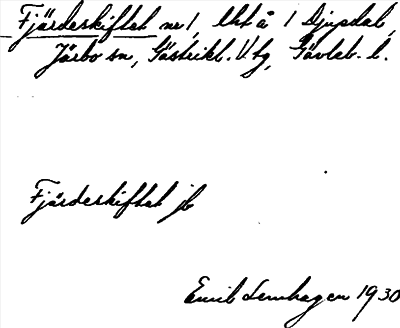 Fjärdeskiftet nr 1, lht å 1 Djupdal,
Järbo sn, Gästrikl. V. tg, Gävleb. l.
Fjärdeskiftet jb
Emil Lennhagen 1930